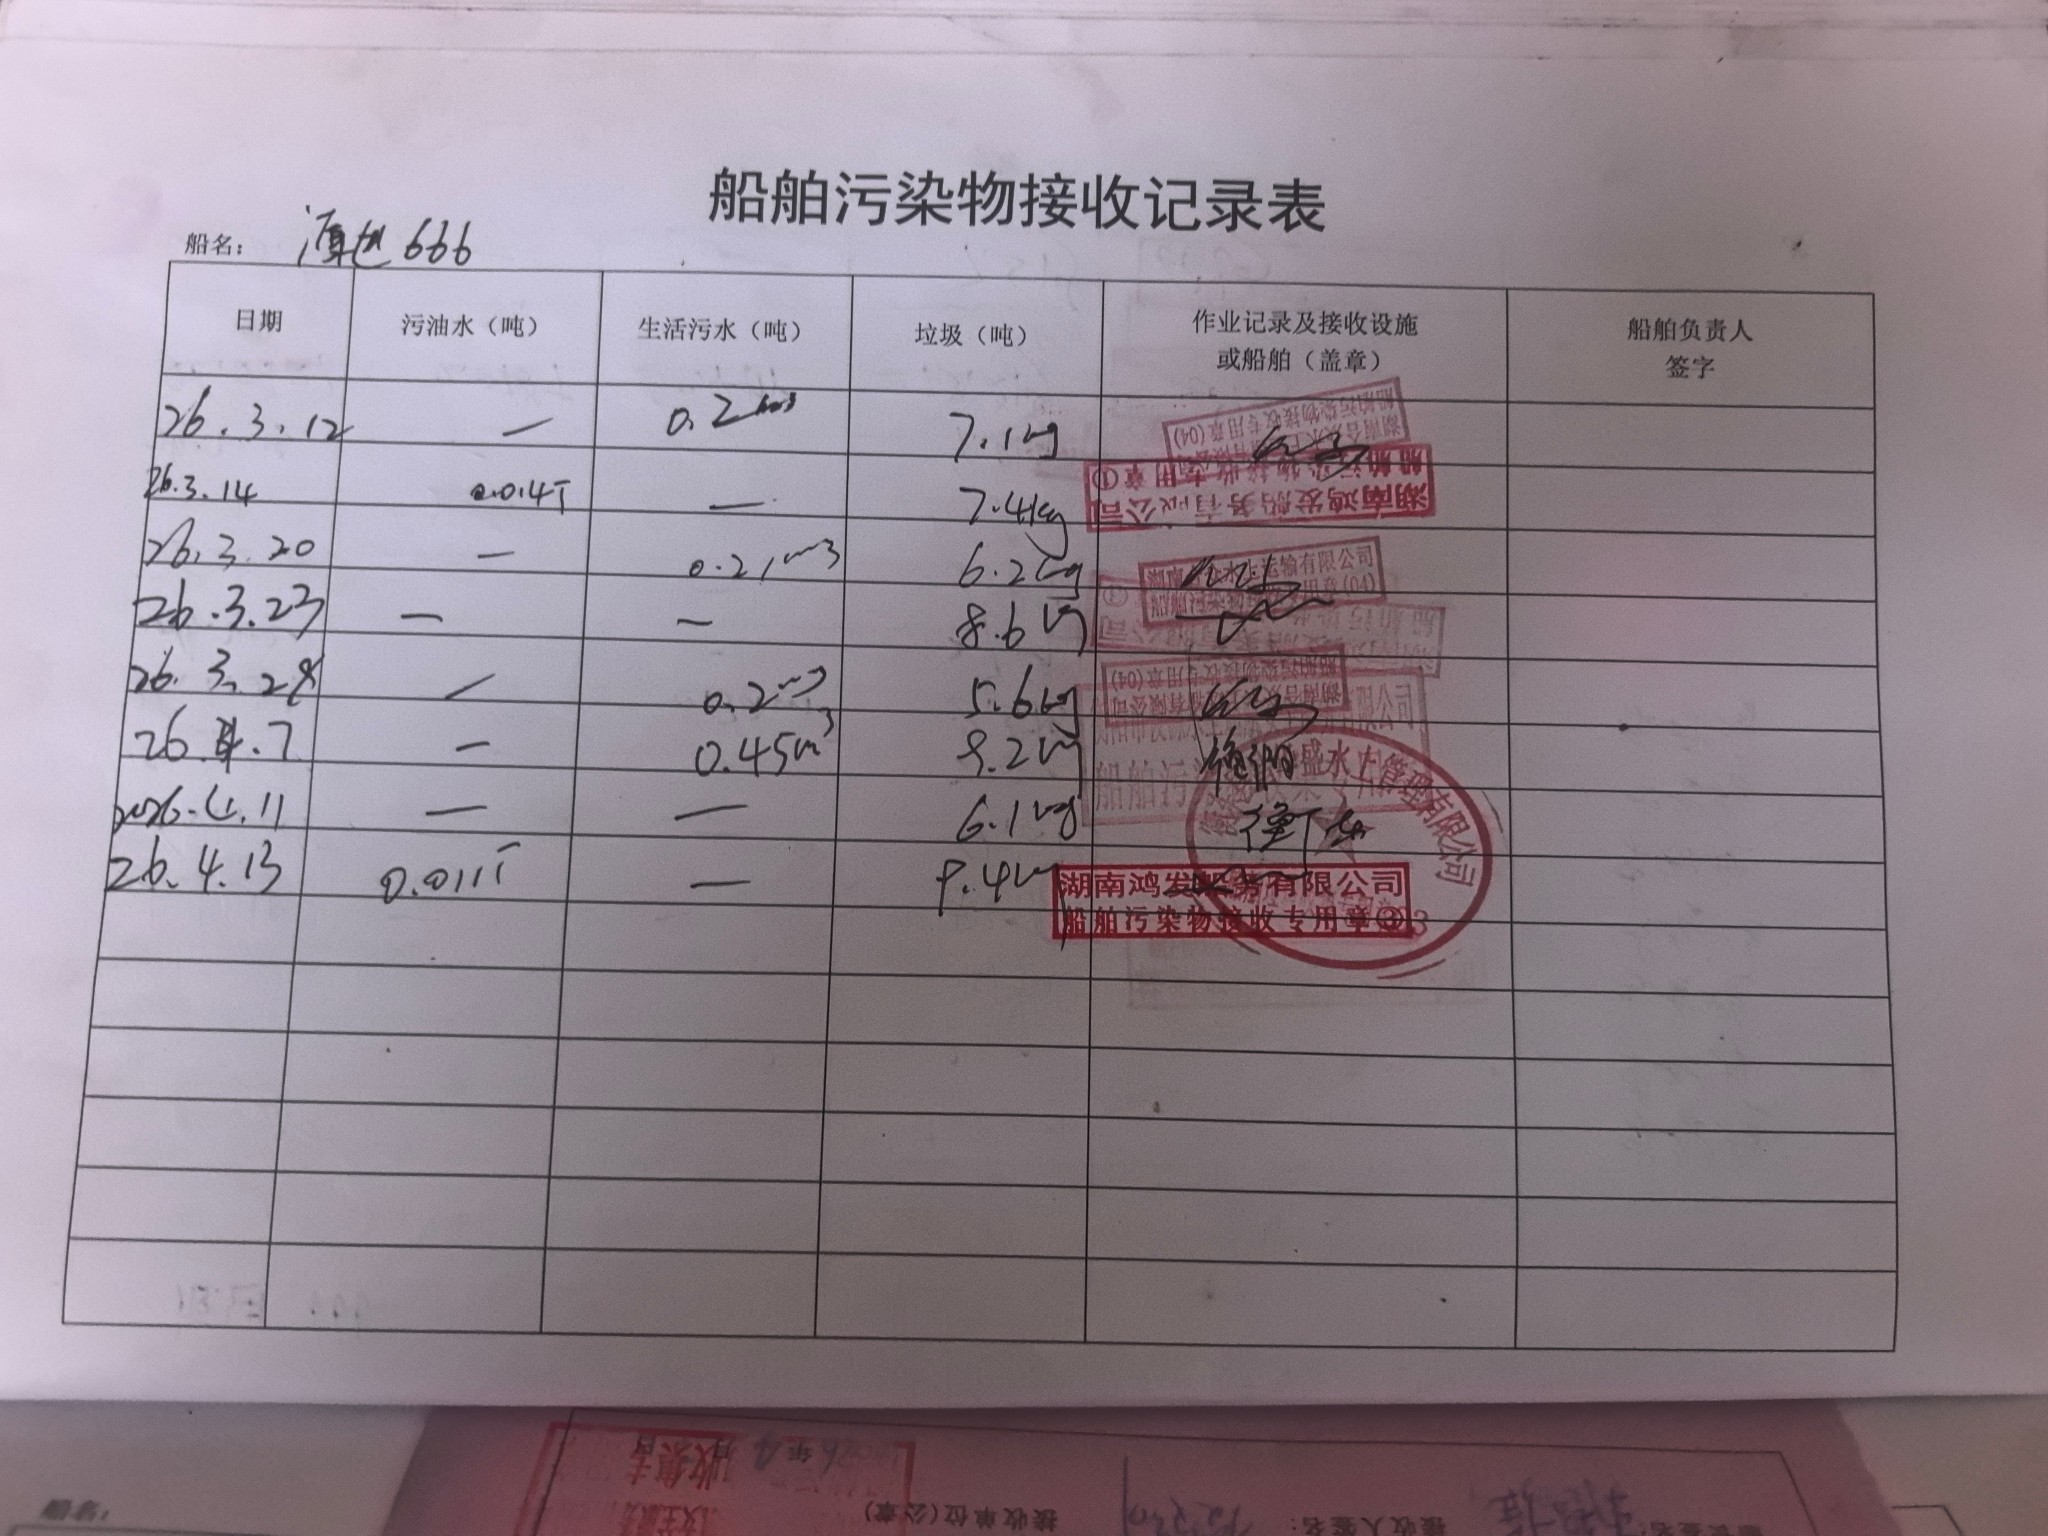 船舶污染物接收记录表
船名： 666
日期 污油水（吨） 生活污水（吨） 垃圾（吨） 作业记录及接收设施 或船舶（盖章） 船舶负责人 签字
26.3.12 — 0.2m³ 7.1kg
26.3.14 0.014T — 7.4kg
26.3.20 — 0.21m³ 6.2kg
26.3.23 — — 8.6kg
26.3.28 — 0.2m³ 5.6kg
26.4.7 — 0.45m³ 9.2kg
2026.4.11 — — 6.1kg
26.4.13 0.011T — 9.4kg
船舶污染物接收专用章(04)
湖南鸿发船务有限公司
船舶污染物接收专用章①
水上运输有限公司
盛水上管理有限公司
湖南鸿发船务有限公司
船舶污染物接收专用章③
船名：
接收单位(公章)
接收人签名：